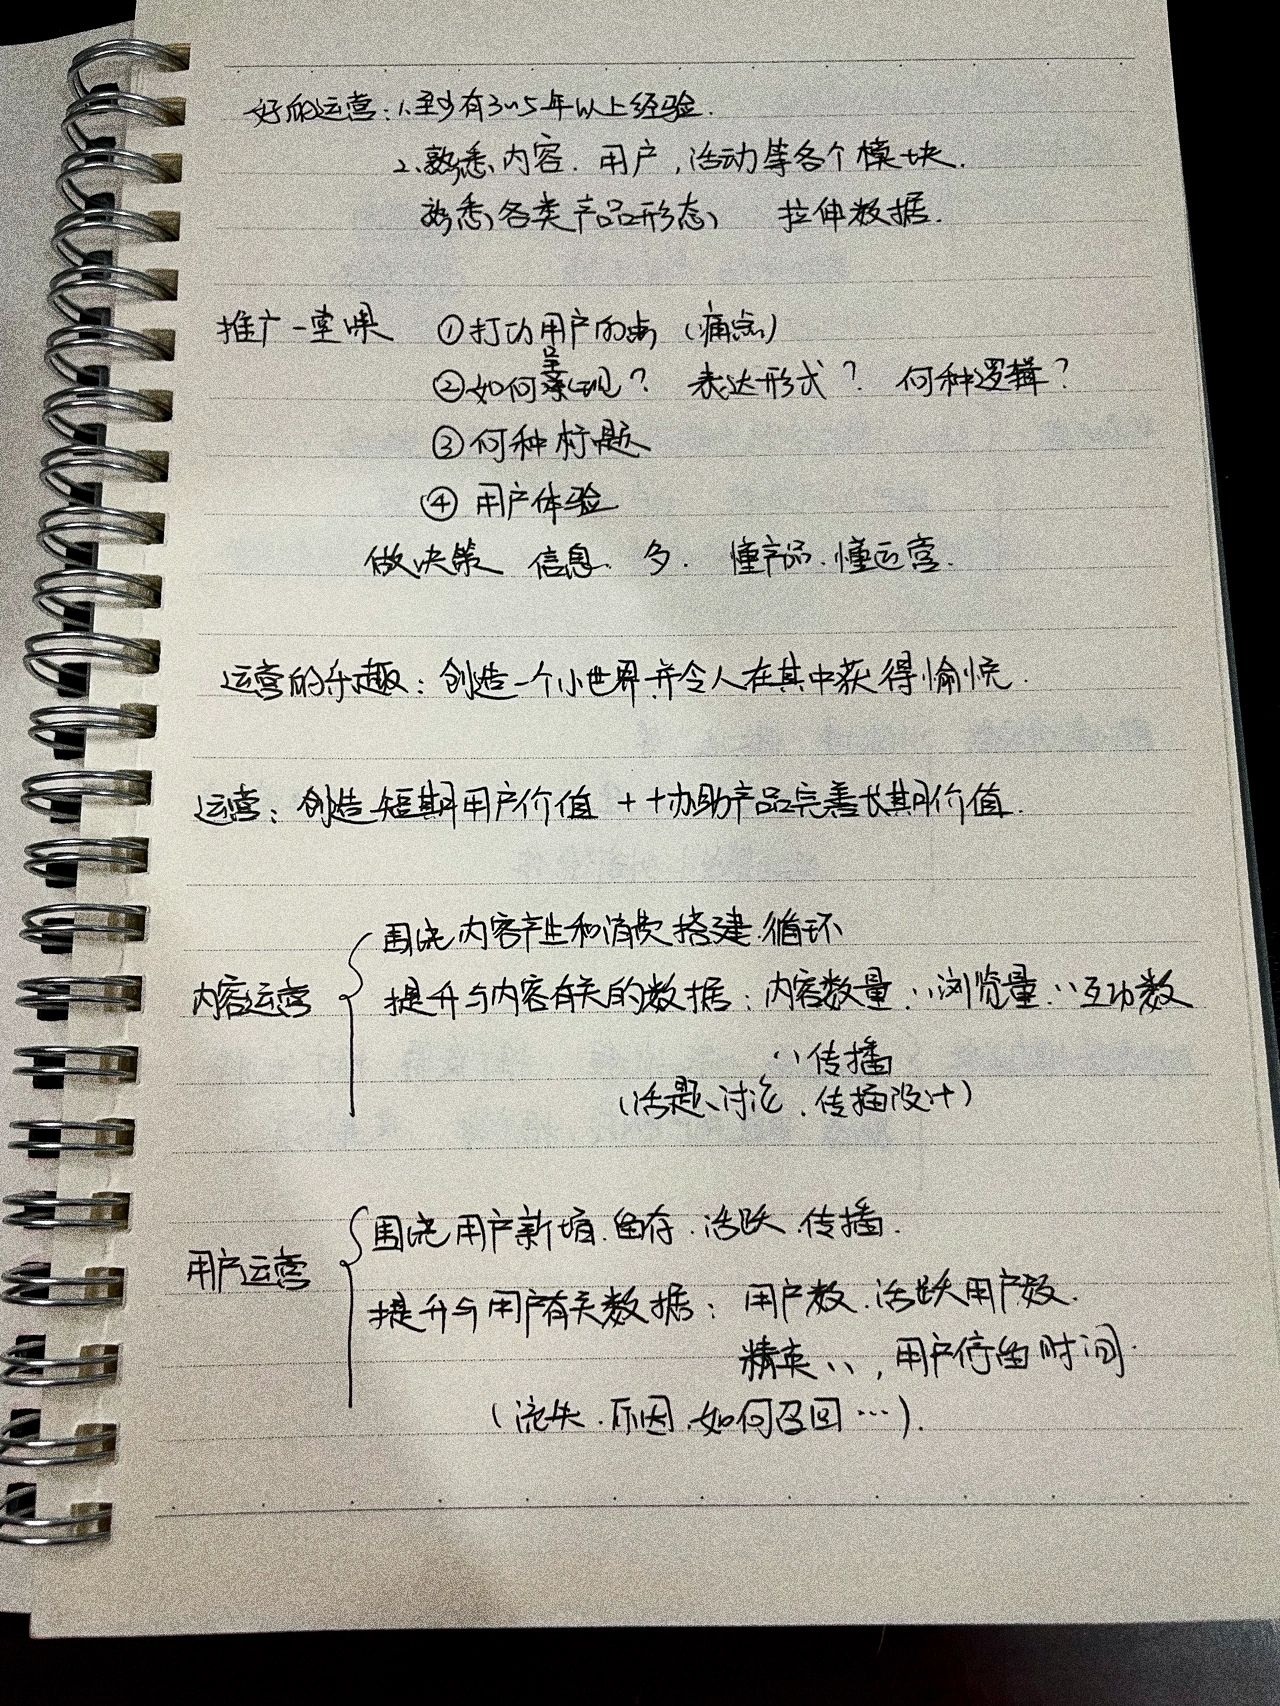 好的运营：1、至少有3~5年以上经验.
2、熟悉、内容、用户，活动等各个模块.
熟悉、各类产品形态、 拉伸数据.
推广一堂课 ①打动用户的点（痛点）
②如何呈现？ 表达形式？ 何种逻辑？
③何种标题
④ 用户体验
做决策 信息、多. 懂产品、懂运营.
运营的乐趣：创造一个小世界并令人在其中获得愉悦.
运营：创造短期用户价值 + 协助产品完善长期价值.
围绕内容产生和消费搭建循环
内容运营 提升与内容有关的数据：内容数量、〃浏览量、〃互动数
〃传播
（话题、讨论、传播设计）
围绕用户新增、留存、活跃、传播.
用户运营
提升与用户有关数据：用户数、活跃用户数.
精英〃，用户停留时间.
（流失、原因、如何召回…）.